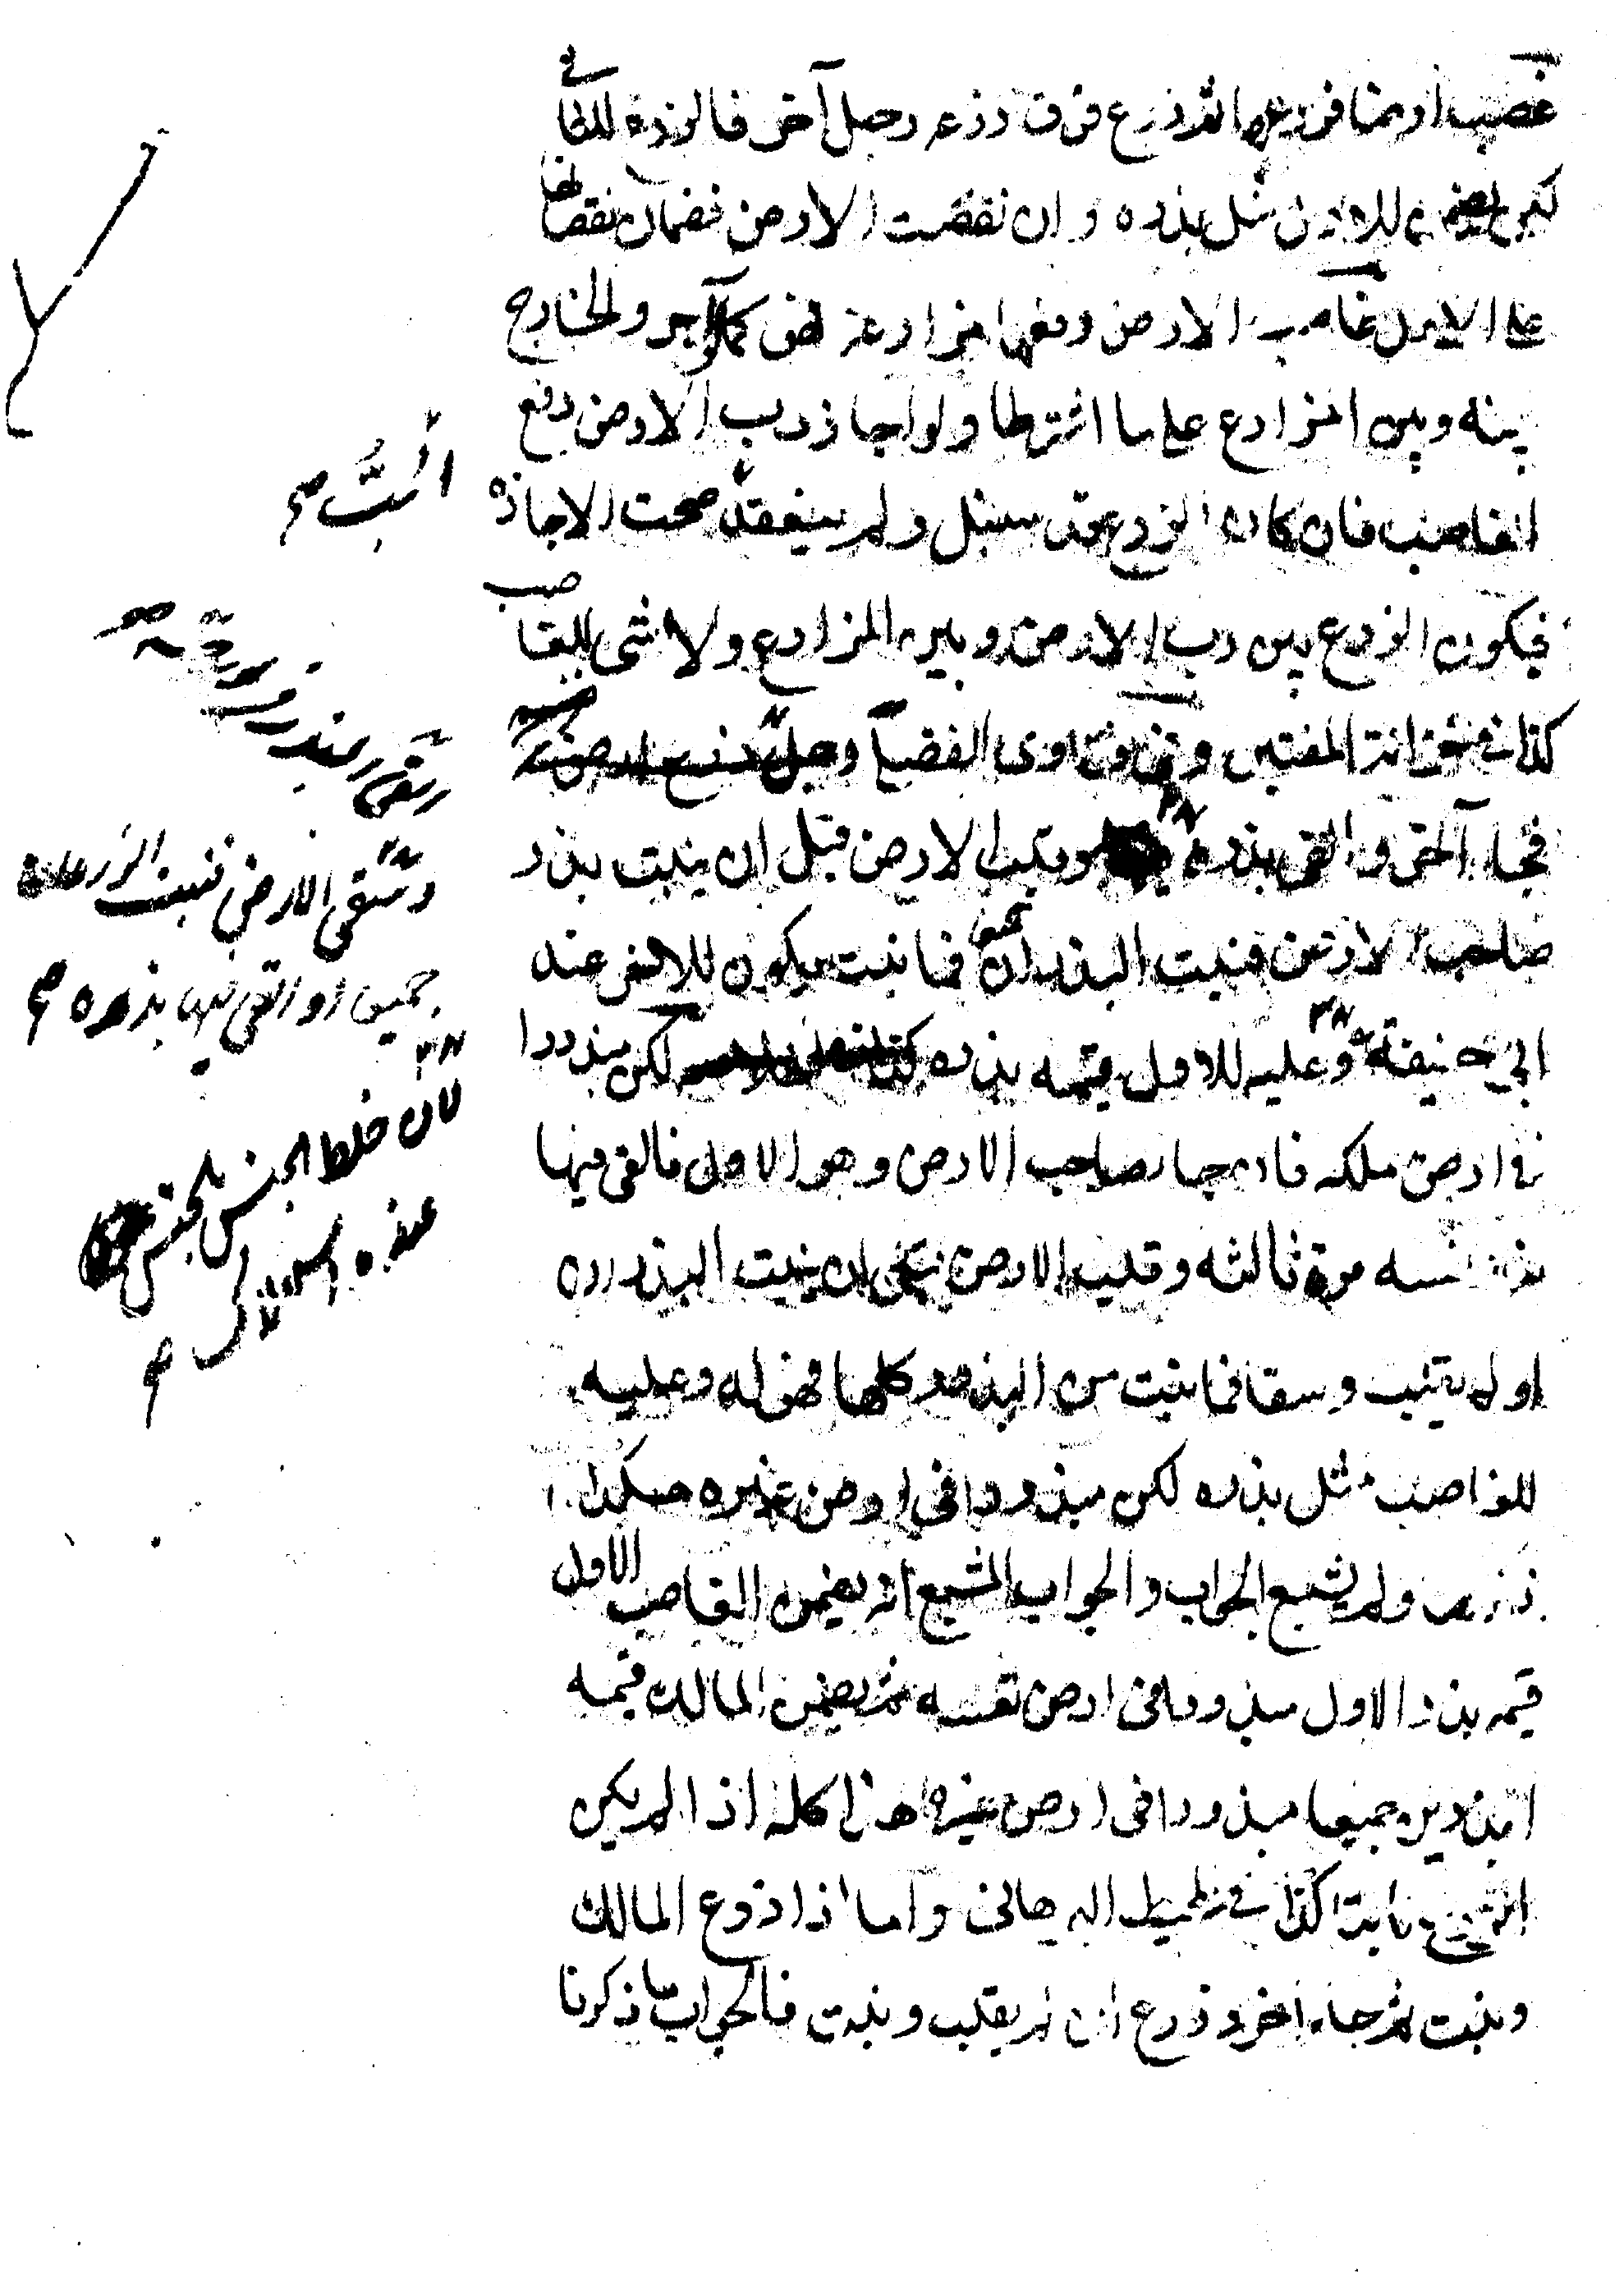 غصب ارضا فزرعها ثم زرع فوق زرعه رجل آخر فالزرع للثاني
لكن يضمن للاول مثل بذره وان نقصت الارض فضمان نقصانها
على الاول غاصب الارض دفعها مزارعة فهو كالآجر والخارج
بينه وبين المزارع على ما اشترطا ولو اجاز رب الارض دفع
الغاصب فان كان الزرع قد سنبل ولم ينعقد صحت الاجازة
فيكون الزرع بين رب الارض وبين المزارع ولا شئ للغاصب
كذا في خزانة المفتين وفي فتاوى الفضلي
فجاء آخر والقى بذره وقلب الارض قبل ان ينبت بذر
صاحب الارض فنبت البذران فما نبت يكون للآخر عند
ابي حنيفة وعليه للاول قيمة بذره لكن مبذورا
في ارض ملكه فان جاء صاحب الارض وهو الاول فالقى فيها
بذر نفسه مرة ثالثة وقلب الارض قبل ان ينبت البذر
او لم يقلب وسقا فما نبت من البذور كلها فهو له وعليه
للغاصب مثل بذره لكن مبذورا في ارض غيره هكذا
ذكر ولم يشبع الجواب والجواب المشبع انه يضمن الغاصب الاول
قيمة بذر الاول مبذورا في ارض نفسه ثم يضمن المالك قيمة
البذرين جميعا مبذورا في ارض غيره هذا كله اذا لم يكن
الزرع نابتا كذا في المحيط البرهاني واما اذا زرع المالك
ونبت ثم جاء آخر وزرع ان لم يقلب ونبت فالجواب ما ذكرنا
انبت صح
وسقى الارض فنبت الزرعان
جميعا او القى فيها بذره صح
لان خلط الجنس بالجنس
عنده استهلاك صح